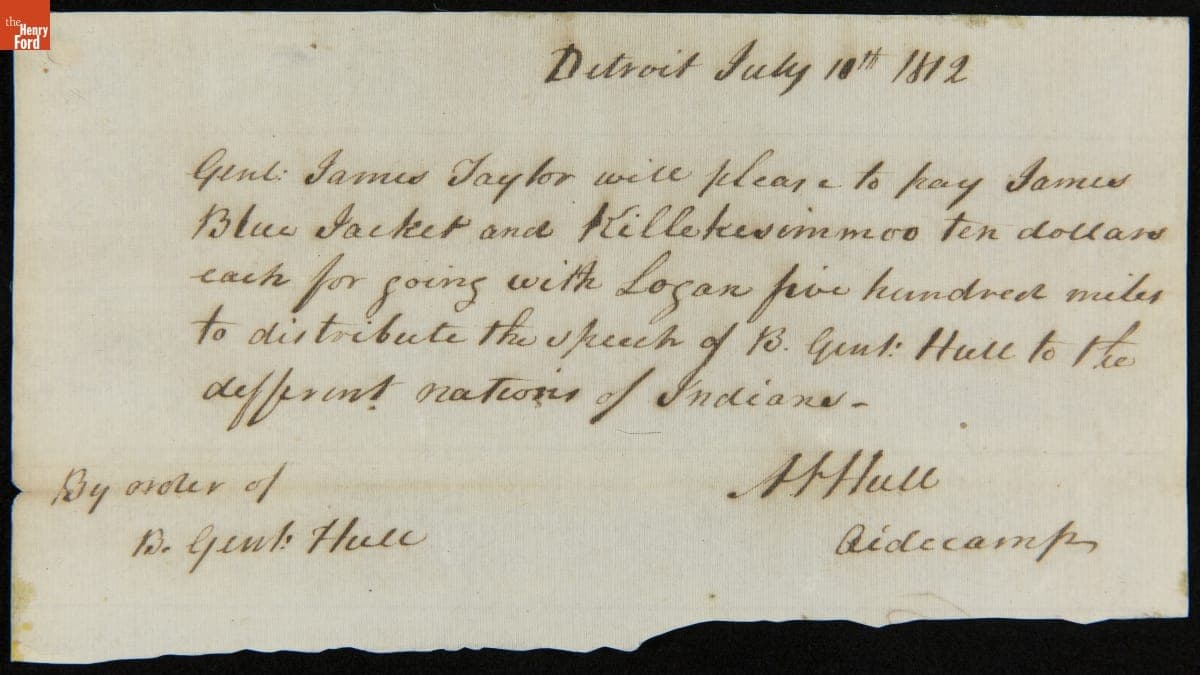 the
Henry
Ford
Detroit July 10th 1812
Genl: James Taylor will please to pay James
Blue Jacket and Killekesimmoo ten dollars
each for going with Logan five hundred miles
to distribute the speech of B. Genl: Hull to the
different nations of Indians -
By order of
B. Genl: Hull
A F Hull
Aidecamp